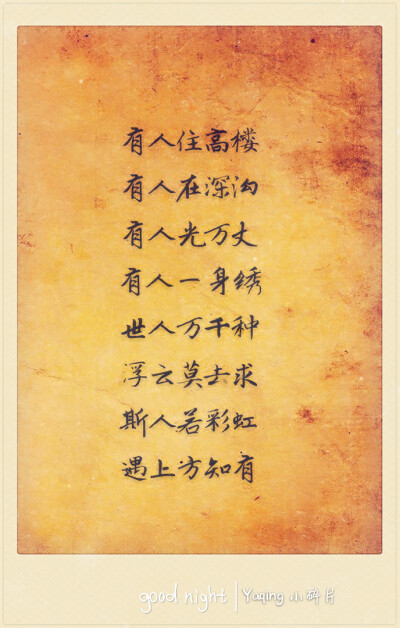 有人住高楼
有人在深沟
有人光万丈
有人一身绣
世人万千种
浮云莫去求
斯人若彩虹
遇上方知有
good night | Yaqing 小碎片